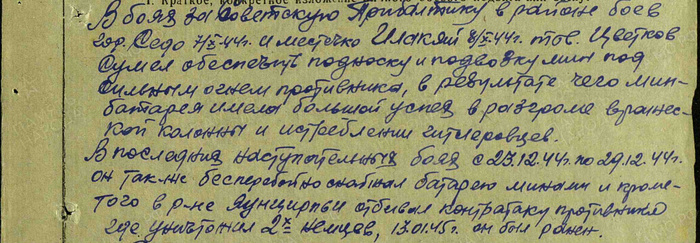 В боях за Советскую Прибалтику, в районе боев
гор. Седо 7/X-44г. и местечко Шакяй 8/X-44г. тов. Цветков
сумел обеспечить подноску и подвозку мин под
сильным огнем противника, в результате чего мин-
батарея имела большой успех в разгроме вражес-
кой колонны и истреблении гитлеровцев.
В последних наступательных боях с 23.12.44г. по 29.12.44г.
он также бесперебойно снабжал батарею минами и кроме-
того в р-не отбивал контратаку противника
где уничтожил 2х немцев, 13.01.45г. он был ранен.